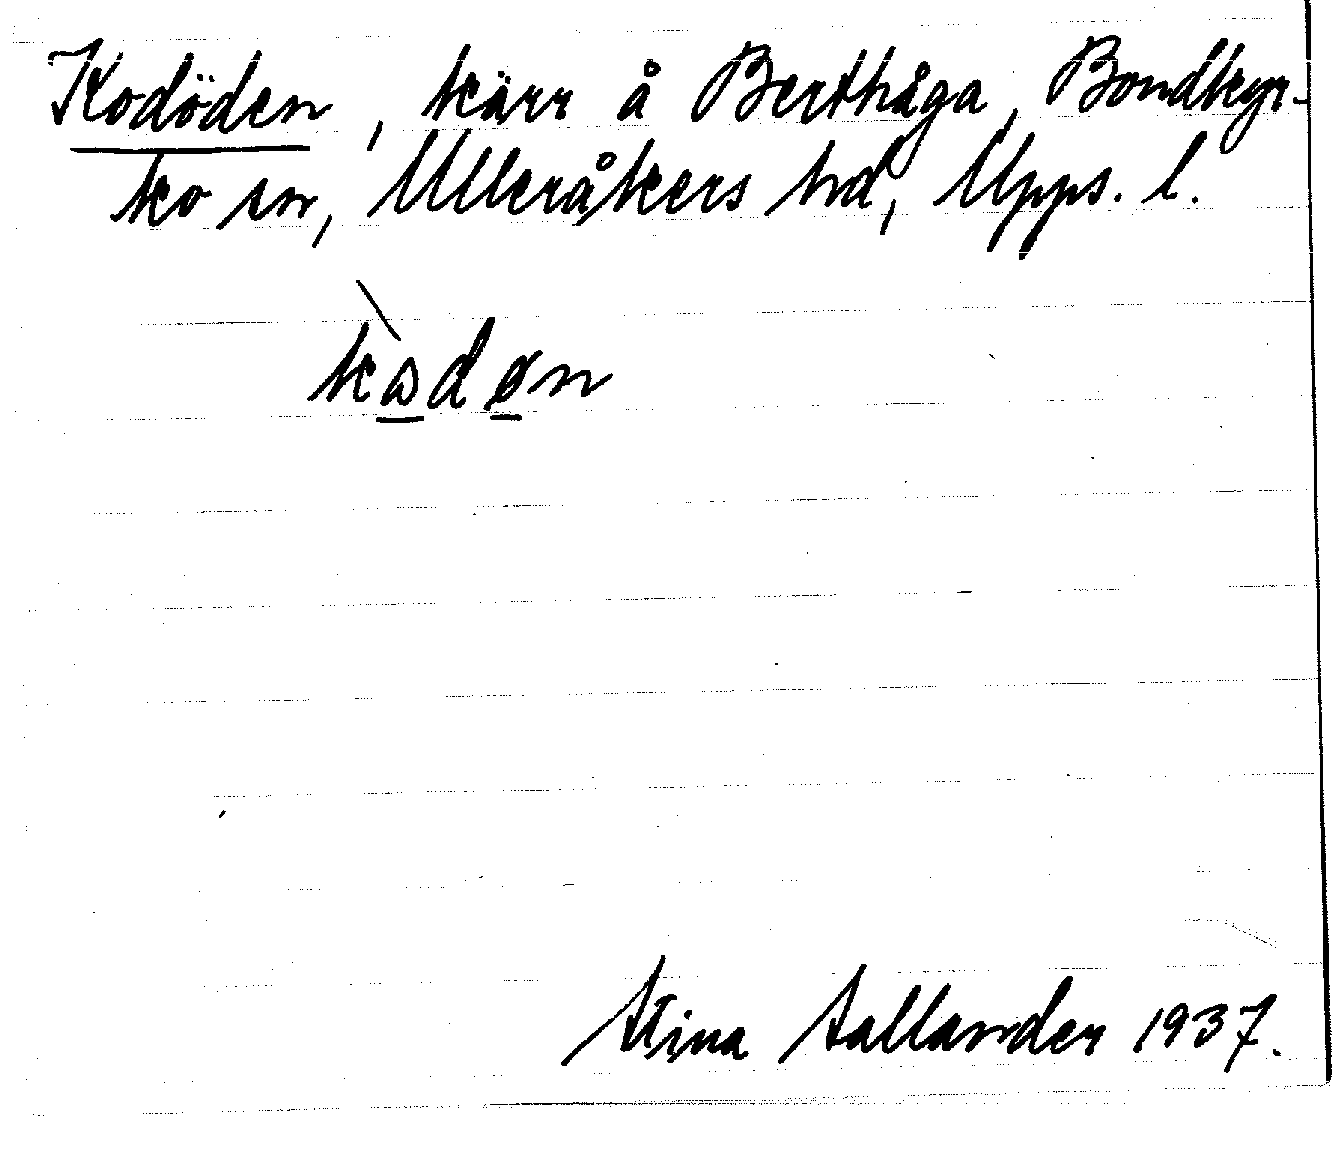 Kodöden, kärr å Berthåga, Bondkyr-
ko sn, Ulleråkers hd, Upps. l.
Stina Hallander 1937.